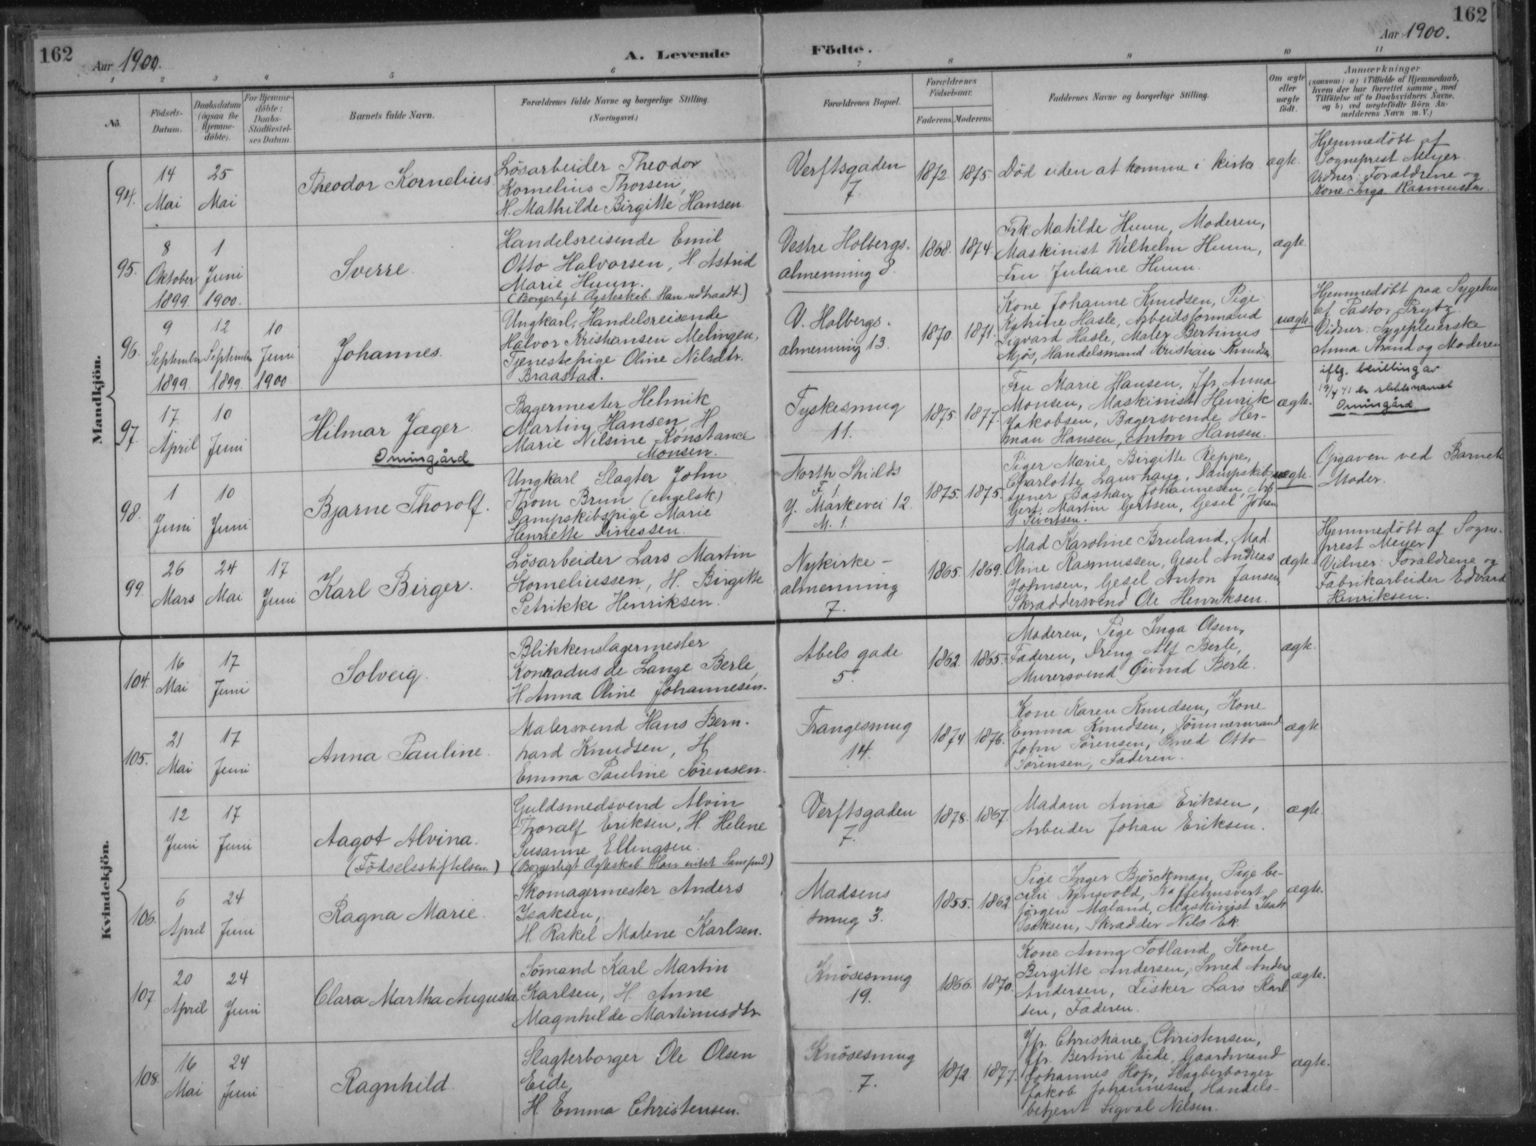 162
Aar 1900.
A. Levende
Födte.
Aar 1900.
162
1 2 3 4 5 6 7 8 9 10 11
No.
Födsels-
Datum.
Daabsdatum
(ogsaa for
Hjemme-
döbte).
For Hjemme-
döbte:
Daabs-
Stadfæstel-
ses Datum.
Barnets fulde Navn.
Forældrenes fulde Navne og borgerlige Stilling.
(Næringsvei.)
Forældrenes Bopæl.
Forældrenes
Födselsaar.
Faderens. Moderens.
Faddernes Navne og borgerlige Stilling.
Om ægte
eller
uægte
født.
Anmærkninger
(saasom: a) i Tilfælde af Hjemmedaab,
hvem der har forrettet samme, med
Tilføielse af to Daabsvidners Navne,
og b) ved uægtefødte Börn An-
melderens Navn m. V.)
Mandkjön.
94.
14
Mai
25
Mai
Theodor Kornelius
Lösarbeider Theodor
Kornelius Thorsen,
H. Mathilde Birgitte Hansen
Verftsgaden
7.
1872 1875
Död uden at komme i kirke
ægte.
Hjemmedöbt af
Sogneprest Meyer
Vidner: Forældrene og
Kone Inga Rasmussen
95.
8
Oktober
1899
1
Juni
1900.
Sverre.
Handelsreisende Emil
Otto Halvorsen, H. Astrid
Marie Huun.
(Borgerligt Ægteskab. Han udtraadt)
Vestre Holbergs.
almenning 8.
1868 1874
Frk Matilde Huun, Moderen,
Maskinist Wilhelm Huun,
Fru Juliane Huun.
ægte.
96.
9
September
1899
12
September
1899
10
Juni
1900
Johannes.
Ungkarl, Handelsreisende
Halvor Kristiansen Melingen,
Tjenestepige Oline Nilsdtr.
Braastad.
V. Holbergs.
almenning 13.
1870 1871
Kone Johanne Knudsen, Pige
Katrine Hasle, Arbeidsformand
Sigvard Hasle, Maler Bertinius
Mjös, Handelsmand Kristian Knudsen
uægte
Hjemmedöbt paa Sygehus
af Pastor Prytz
Vidner: Sygepleierske
Anna Strand og Moderen
97.
17
April
10
Juni
Hilmar Jæger
Omingård
Bagermester Helmik
Martin Hansen, H.
Marie Nilsine Konstance
Monsen.
Tyskesmug
11.
1875 1877
Fru Marie Hansen, Jfr. Anna
Monsen, Maskinist Henrik
Jakobsen, Bagersvende Her-
man Hansen, Anton Hansen.
ægte.
iflg. bevilling av
19/4 41 er slektsnavnet
Omingård
98.
1
Juni
10
Juni
Bjarne Thorolf.
Ungkarl Slagter John
Thom Brun (engelsk)
Dampskibspige Marie
Henriette Diriessen.
North Shields
F.
Y. Markevei 12
M. 1.
1875. 1875.
Piger Marie, Birgitte Reppe,
Charlotte Laurhaug, Dampskibs
Bastian Johannesen, Arb.
Gert Martin Gertsen, Gesel Johan
Sivertsen.
uægte.
Opgaven ved Barnets
Moder.
99.
26
Mars
24
Mai
17
Juni
Karl Birger.
Lösarbeider Lars Martin
Korneliussen, H. Birgitte
Petrikke Henriksen.
Nykirke-
almenning
7.
1865 1869
Mad Karoline Bruland, Mad
Oline Rasmussen, Gesel Andreas
Johnsen, Gesel Anton Jansen,
Skræddersvend Ole Henriksen.
ægte
Hjemmedöbt af Sogne-
prest Meyer
Vidner: Forældrene og
Fabrikarbeider Edvard
Henriksen.
Kvindekjön.
104.
16
Mai
17
Juni
Solveig.
Blikkenslagermester
Konradus de Lange Berle
H. Anna Oline Johannesen.
Abels gade
5.
1862 1865
Moderen, Pige Inga Olsen,
Faderen, Dreng Alf Berle,
Murersvend Öivind Berle.
ægte.
105.
21
Mai
17
Juni
Anna Pauline.
Malersvend Hans Bern-
hard Knudsen, H.
Emma Pauline Sörensen.
Trangesmug
14.
1874 1876.
Kone Karen Knudsen, Kone
Emma Knudsen, Tömmermand
John Sörensen, Smed Otto
Sörensen, Faderen.
ægte
12
Juni
17
Juni
Aagot Alvina.
(Födselsstiftelsen)
Guldsmedsvend Alvin
Thoralf Eriksen, H. Helene
Susanne Ellingsen.
(Borgerligt Ægteskab. Samfund)
Verftsgaden
7.
1878. 1867
Madam Anna Eriksen,
Arbeider Johan Eriksen.
ægte
106.
6
April
24
Juni
Ragna Marie.
Skomagermester Anders
Isaksen,
H. Rakel Malene Karlsen.
Madsens
smug 3.
1855. 1862
Pige Inger Björckman, Pige Ce-
cilie Kaffehusvert
Jörgen Maland, Maskinist Isak
Isaksen, Skrædder Nils Ek.
ægte.
107.
20
April
24
Juni
Clara Martha Augusta
Sömand Karl Martin
Karlsen, H. Anne
Magnhilde Martinusdtr
Knösesmug
19.
1866. 1870
Kone Anna Totland, Kone
Birgitte Andersen, Smed Anders
Andersen, Fisker Lars Karl
sen, Faderen.
ægte.
108.
16
Mai
24
Juni
Ragnhild.
Slagterborger Ole Olsen
Eide,
H. Emma Christensen.
Knösesmug
7.
1872 1877.
Jfr. Christiane Christensen,
Jfr. Bertine Eide, Gaardmand
Johannes Hop, Slagterborger
Jakob Johannesen, Handels-
betjent Sigval Nilsen.
ægte.